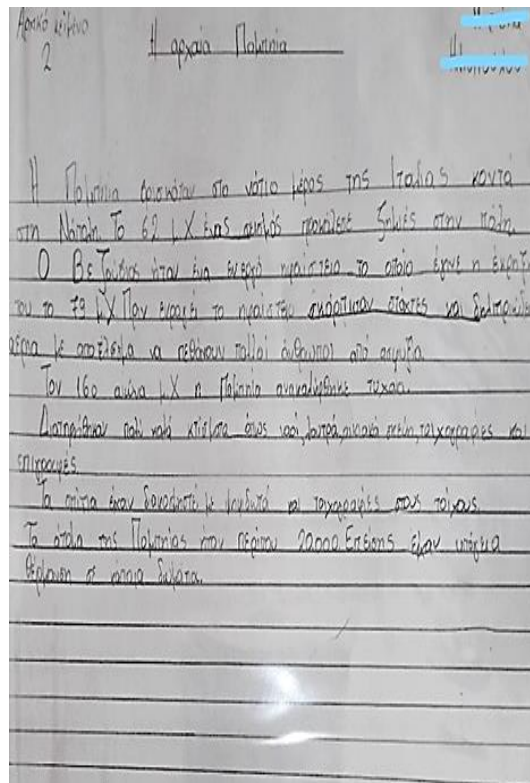 Αρχικό κείμενο
2
Η αρχαία Πομπηία
Η Πομπηία βρισκόταν στο νότιο μέρος της Ιταλίας κοντά
στη Νάπολη. Το 62 μ.Χ ένας σεισμός προκάλεσε ζημιές στην πόλη.
Ο Βεζούβιος ήταν ένα ενεργό ηφαίστειο το οποίο έγινε η έκρηξή
του το 79 μ.Χ Πριν εκραγεί το ηφαίστειο σκόρπισαν στάχτες και δηλητηριώδη
αέρια με αποτέλεσμα να πεθάνουν πολλοί άνθρωποι από ασφυξία.
Τον 16ο αιώνα μ.Χ η Πομπηία ανακαλύφθηκε τυχαία.
Διατηρήθηκαν πολύ καλά κτίσματα όπως ναοί, λουτρά, οικιακά σκεύη, τοιχογραφίες και
επιγραφές.
Τα σπίτια είχαν διακοσμηθεί με ψηφιδωτά και τοιχογραφίες στους τοίχους.
Τα άτομα της Πομπηίας ήταν περίπου 20.000. Επίσης είχαν υπόγεια
θέρμανση σε κάποια δωμάτια.